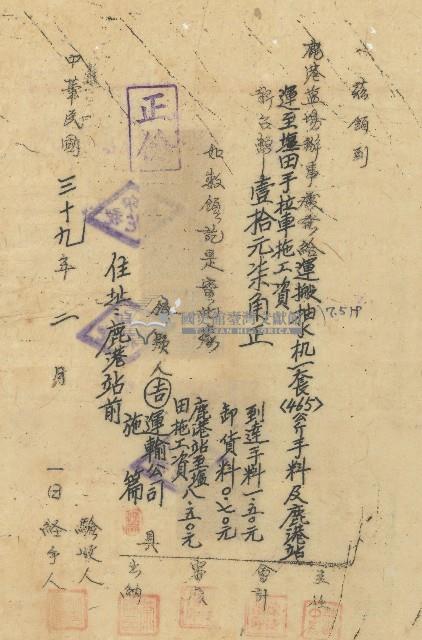 茲領到
鹿港鹽場辦事處發給運搬抽水机一套(465)公斤手料及鹿港站
7.5HP
運至塭田手拉車拖工資
新台幣壹拾元柒角正
到達手料一.五〇元
卸貨料〇.七〇元
鹿港站至塭
田拖工資八.五〇元
如數領訖是實此據
領款人吉運輸公司
施篇
具
住址鹿港站前
正
國史館臺灣文獻館
TAIWAN HISTORICA
中華民國三十九年二月一日
主任
會計
審核
出納
驗收人
經手人